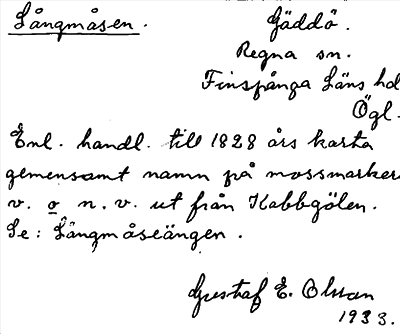 Långmåsen.
Gäddö.
Regna sn.
Finspånga Läns hd
Ögl.
Enl. handl. till 1828 års karta
gemensamt namn på mossmarkera
v. o n. v. ut från Kabbgölen.
Se: Långmåseängen.
Gustaf E. Olsson
1933.